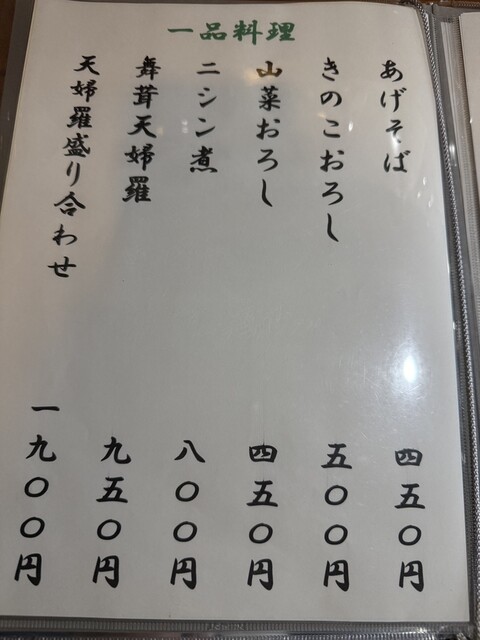 一品料理
あげそば 四五〇円
きのこおろし 五〇〇円
山菜おろし 四五〇円
ニシン煮 八〇〇円
舞茸天婦羅 九五〇円
天婦羅盛り合わせ 一九〇〇円